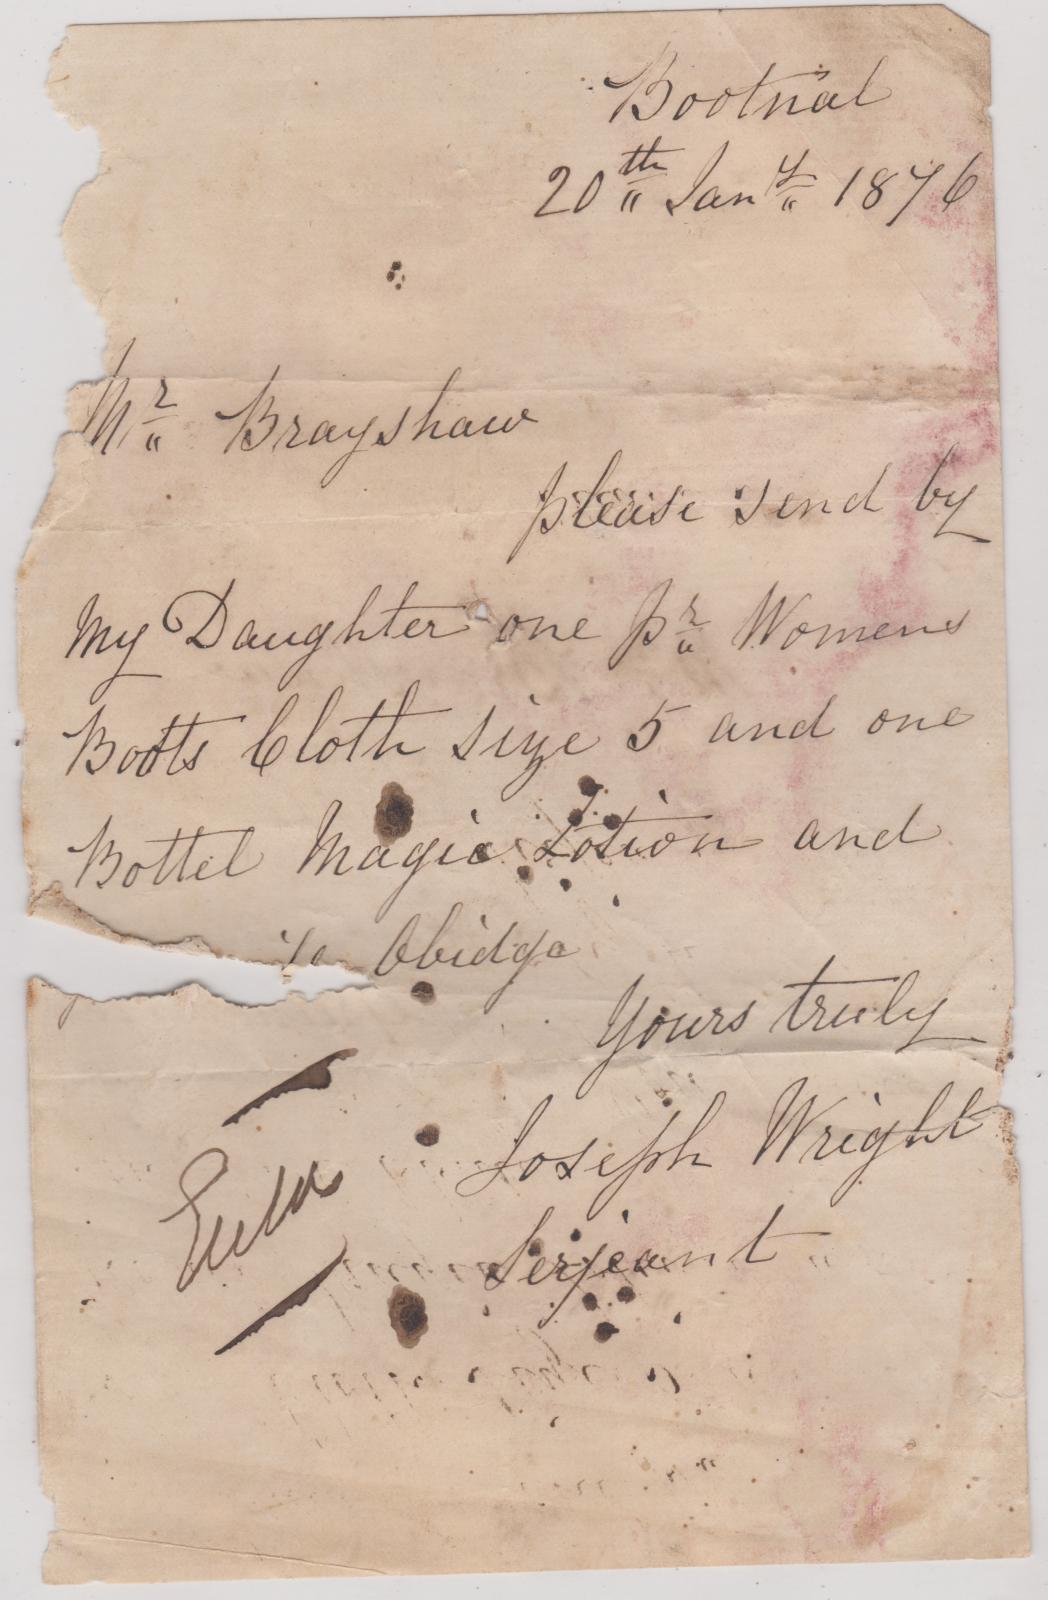 Bootnal
20th Jany 1876
Mr Brayshaw
please send by
My Daughter one pr Womens
Boots Cloth size 5 and one
Bottel Magic Lotion and
Obidge
Yours truly
Joseph Wright
Serjeant